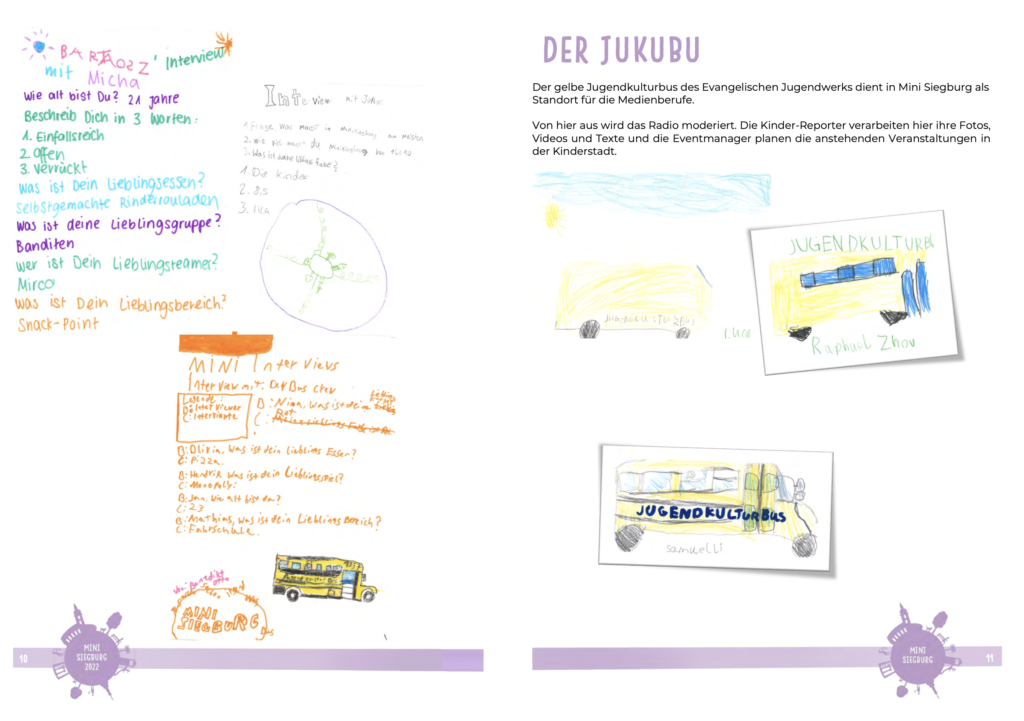 BARTOSZ' Interview
mit Micha
Wie alt bist Du? 21 Jahre
Beschreib Dich in 3 Worten:
1. Einfallsreich
2. Offen
3. Verrückt
Was ist Dein Lieblingsessen?
Selbstgemachte Rinderrouladen
Was ist deine Lieblingsgruppe?
Banditen
Wer ist Dein Lieblingsteamer?
Mirco
Was ist Dein Lieblingsbereich?
Snack-Point
Interview mit
1. Frage was in am meisten
2. wie
3. Was ist
1. Die Kinder
2. 8,5
3. lila
MINI InterViews
InterView mit:
Legende:
B: Interviewer
C:
B: Nina, Was ist dein
C: Rot
B: Olivia, Was ist dein Lieblings Essen?
C: Pizza.
B: Hendrik Was ist dein Lieblingsspiel?
C: Monopoly.
B: Jan, Wie alt bist du?
C: 23
B: Mathias, Was ist dein Lieblings Bereich?
C: Fahrschule.
MINI
SIEGBURG
MINI
SIEGBURG
2022
10
DER JUKUBU
Der gelbe Jugendkulturbus des Evangelischen Jugendwerks dient in Mini Siegburg als
Standort für die Medienberufe.
Von hier aus wird das Radio moderiert. Die Kinder-Reporter verarbeiten hier ihre Fotos,
Videos und Texte und die Eventmanager planen die anstehenden Veranstaltungen in
der Kinderstadt.
JUGENDKULTURBUS
Luca
JUGENDKULTURBU
Raphael Zhou
JUGENDKULTURBUS
samuelli
MINI
SIEGBURG
11